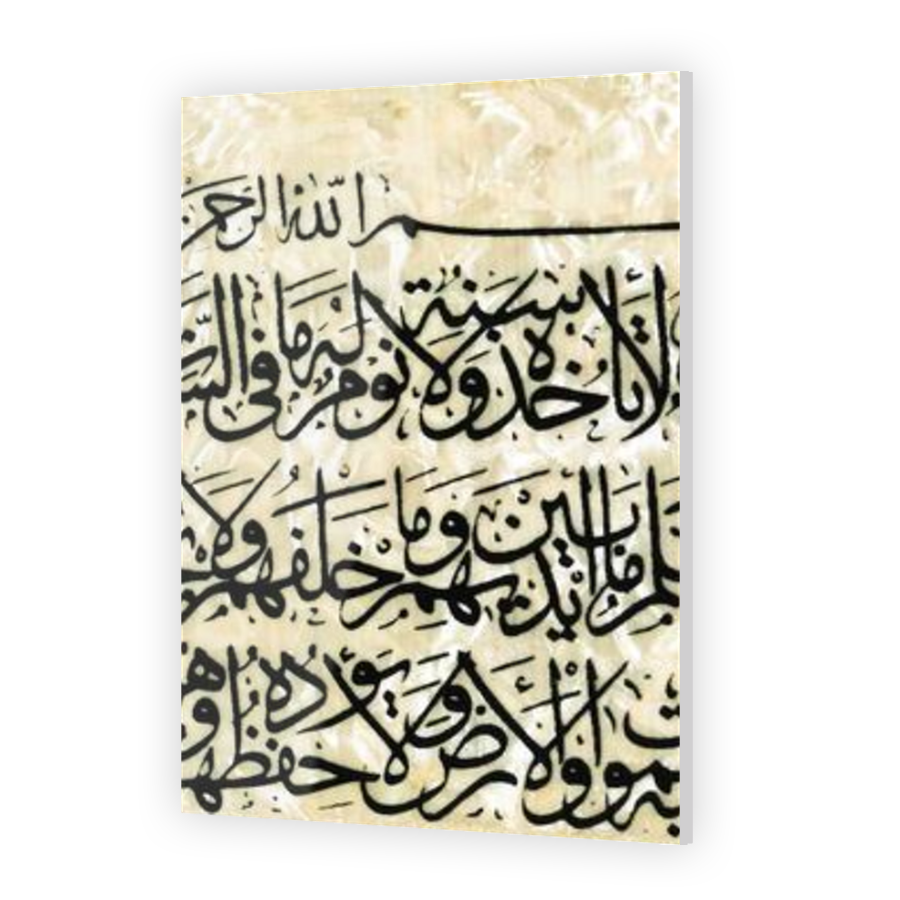 ـسم الله الرحمن
لا تأخذه سنة ولا نوم له ما في السـ
ـلم ما بين أيديهم وما خلفهم ولا يحـ
ـت والأرض ولا يؤده حفظهما وهو